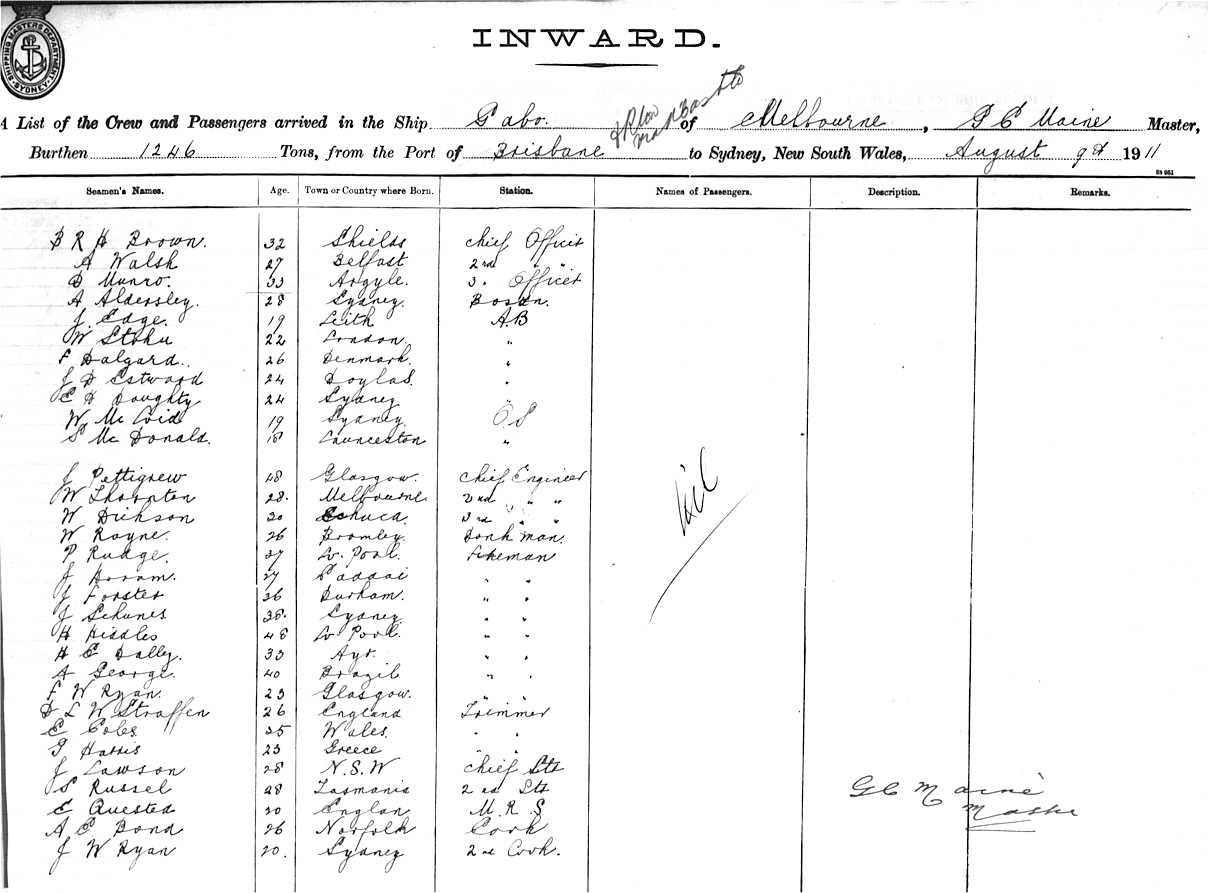 SHIPPING MASTERS DEPARTMENT SYDNEY
INWARD.
A List of the Crew and Passengers arrived in the Ship Gabo. of Melbourne, G C Maine Master,
Burthen 1246 Tons, from the Port of Brisbane to Sydney, New South Wales, August 9th 1911
Seamen's Names. Age. Town or Country where Born. Station. Names of Passengers. Description. Remarks.
B R H Brown. 32 Shields Chief Officer
A Walsh 27 Belfast 2nd "
D Munro. 33 Argyle. 3. Officer
A Aldersley. 28 Sydney. Bosun.
J. Edge. 19 Leith A.B
W 22 London. "
F Dalgard. 26 Denmark. "
J D Estward 24 Douglas. "
C H Doughty 24 Sydney "
W Mc Coid 19 Sydney O S
S Mc Donald. 18 Launceston "
J Pettigrew 48 Glasgow. Chief Engineer
W Thornton 28. Melbourne 2nd " "
W Dickson 30 Echuca. 3rd " "
W Rayne. 26 Bromley. Donk man.
P Rudge. 37 Lv. Pool. Fireman
J 27 " "
J Forster 36 Durham. " "
J 38. Sydney " "
H Hiddles 48 Lv Pool. " "
H E Dalley. 33 Ayr. " "
A George. 40 Brazil " "
F W Ryan. 23 Glasgow. " "
D L W Straffen 26 England Trimmer
E Coles 35 Wales. " "
G Harris 23 Greece " "
J Lawson 28 N.S.W Chief Std
S Russel 28 Tasmania 2nd Std
E Quested 20 Englan M.R.S
A E Bond 26 Norfolk Cook
J W Ryan 20. Sydney 2nd Cook.
Nil
G C Maine
Master